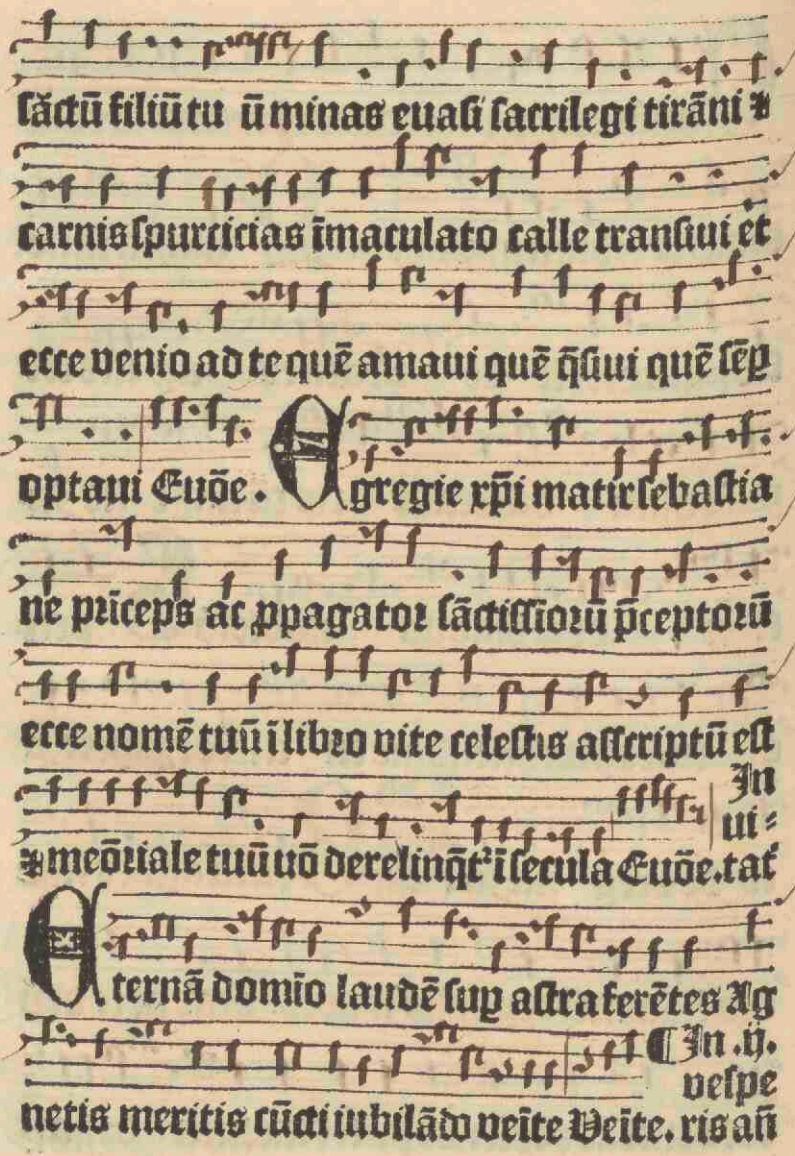 sāctū filiū tu ū minas euasi sacrilegi tirāni ⁊
carnis spurcicias īmaculato calle transiui et
ecce venio ad te quē amaui quē q̄siui quē sēꝑ
optaui Euōe. Egregie xp̄i matir sebastia
ne prīceps ac ꝓpagator sāctissiorū p̄ceptorū
ecce nomē tuū ī libro vite celestis asscriptū est
In
ui⸗
⁊ meōriale tuū uō derelinq̄t' ī secula Euōe. tat̄
Eternā domīo laudē suꝑ astra ferētes Ag
¶ In .ij.
vespe
netis meritis cūcti iubilādo veīte Veīte. ris an̄